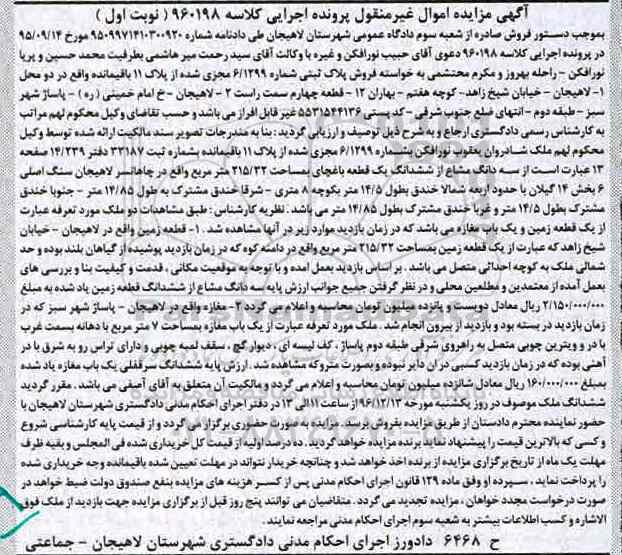 آگهی مزایده اموال غیرمنقول پرونده اجرایی کلاسه ۹۶۰۱۹۸ ( نوبت اول )
بموجب دستور فروش صادره از شعبه سوم دادگاه عمومی شهرستان لاهیجان طی دادنامه شماره ۹۵۰۹۹۷۱۴۱۰۳۰۰۹۲۰ مورخ ۹۵/۰۹/۱۴
در پرونده اجرایی کلاسه ۹۶۰۱۹۸ دعوی آقای حبیب نورافکن و غیره با وکالت آقای سید رحمت میر هاشمی بطرفیت محمد حسین و پریا
نورافکن - راحله بهروز و مکرم محتشمی به خواسته فروش پلاک ثبتی شماره ۶/۱۲۹۹ مجزی شده از پلاک ۱۱ باقیمانده واقع در دو محل
۱- لاهیجان - خیابان شیخ زاهد- کوچه هفتم - بهاران ۱۲ - قطعه چهارم سمت راست ۲ - لاهیجان - خ امام خمینی ( ره ) - پاساژ شهر
سبز - طبقه دوم - انتهای ضلع جنوب شرقی - کد پستی ۵۵۳۱۵۴۴۱۳۶ غیر قابل افراز می باشد و حسب تقاضای وکیل محکوم لهم مراتب
به کارشناس رسمی دادگستری ارجاع و به شرح ذیل توصیف و ارزیابی گردید : بنا به مندرجات تصویر سند مالکیت ارائه شده توسط وکیل
محکوم لهم ملک شادروان یعقوب نورافکن بشماره ۶/۱۲۹۹ مجزی شده از پلاک ۱۱ باقیمانده بشماره ثبت ۳۳۱۸۷ دفتر ۱۴/۲۳۹ صفحه
۱۳ عبارت است از سه دانگ مشاع از ششدانگ یک قطعه باغچای بمساحت ۲۱۵/۳۲ متر مربع واقع در چاهانسر لاهیجان سنگ اصلی
۶ بخش ۱۴ گیلان با حدود اربعه شمالا خندق بطول ۱۴/۵ متر بکوچه ۸ متری - شرقا خندق مشترک به طول ۱۴/۸۵ متر - جنوبا خندق
مشترک بطول ۱۴/۵ متر و غربا خندق مشترک بطول ۱۴/۸۵ متر می باشد . نظریه کارشناس : طبق مشاهدات دو ملک مورد تعرفه عبارت
از یک قطعه زمین و یک باب مغازه می باشد که در زمان بازدید موارد زیر در آنها مشاهده شد . ۱- قطعه زمین واقع در لاهیجان - خیابان
شیخ زاهد که عبارت از یک قطعه زمین بمساحت ۲۱۵/۳۲ متر مربع واقع در دامنه کوه که در زمان بازدید پوشیده از گیاهان بلند بوده و حد
شمالی ملک به کوچه احداثی متصل می باشد . بر اساس بازدید بعمل امده و با توجه به موقعیت مکانی ، قدمت و کیفیت بنا و بررسی های
بعمل آمده از معتمدین و مطلعین محلی و در نظر گرفتن جمیع جوانب ارزش پایه سه دانگ مشاع از ششدانگ قطعه زمین یاد شده به مبلغ
۲/۱۵۰/۰۰۰/۰۰۰ ریال معادل دویست و پانزده میلیون تومان محاسبه و اعلام می گردد ۲- مغازه واقع در لاهیجان - پاساژ شهر سبز که در
زمان بازدید در بسته بود و بازدید از بیرون انجام شد . ملک مورد تعرفه عبارت از یک باب مغازه بمساحت ۷ متر مربع با دهانه بسمت غرب
با در و ویترین چوبی متصل به راهروی شرقی طبقه دوم پاساژ ، کف لیسه ای ، دیوار گچ ، سقف لمبه چوبی و دارای تراس رو به شرق با در
آهنی بوده که در زمان بازدید کسبی در آن دایر نبوده و بصورت متروکه مشاهده شد . ارزش پایه ششدانگ سرقفلی یک باب مغازه یاد شده
بمبلغ ۱۶۰/۰۰۰/۰۰۰ ریال معادل شانزده میلیون تومان محاسبه و اعلام می گردد و مالکیت آن متعلق به آقای آصفی می باشد . مقرر گردید
ششدانگ ملک موصوف در روز یکشنبه مورخه ۹۶/۱۲/۱۳ از ساعت ۱۱ الی ۱۳ در دفتر اجرای احکام مدنی دادگستری شهرستان لاهیجان با
حضور نماینده محترم دادستان از طریق مزایده بفروش برسد. مزایده به صورت حضوری برگزار می گردد و از قیمت پایه کارشناسی شروع
و کسی که بالاترین قیمت را پیشنهاد نماید برنده مزایده خواهد گردید . ده درصد اولیه از قیمت کل خریداری شده فی المجلس و بقیه ظرف
مهلت یک ماه از تاریخ برگزاری مزایده از برنده اخذ خواهد شد و چنانچه خریدار نتواند در مهلت تعیین شده باقیمانده وجه خریداری شده
را پرداخت نماید ، سپرده او وفق ماده ۱۲۹ قانون اجرای احکام مدنی پس از کسر هزینه های مزایده بنفع صندوق دولت ضبط خواهد در
صورت درخواست مجدد خواهان ، مزایده تجدید می گردد . متقاضیان می توانند پنج روز قبل از برگزاری مزایده جهت بازدید از ملک فوق
الاشاره و کسب اطلاعات بیشتر به شعبه سوم اجرای احکام مدنی مراجعه نمایند .
ح ۶۴۶۸ دادورز اجرای احکام مدنی دادگستری شهرستان لاهیجان - جماعتی